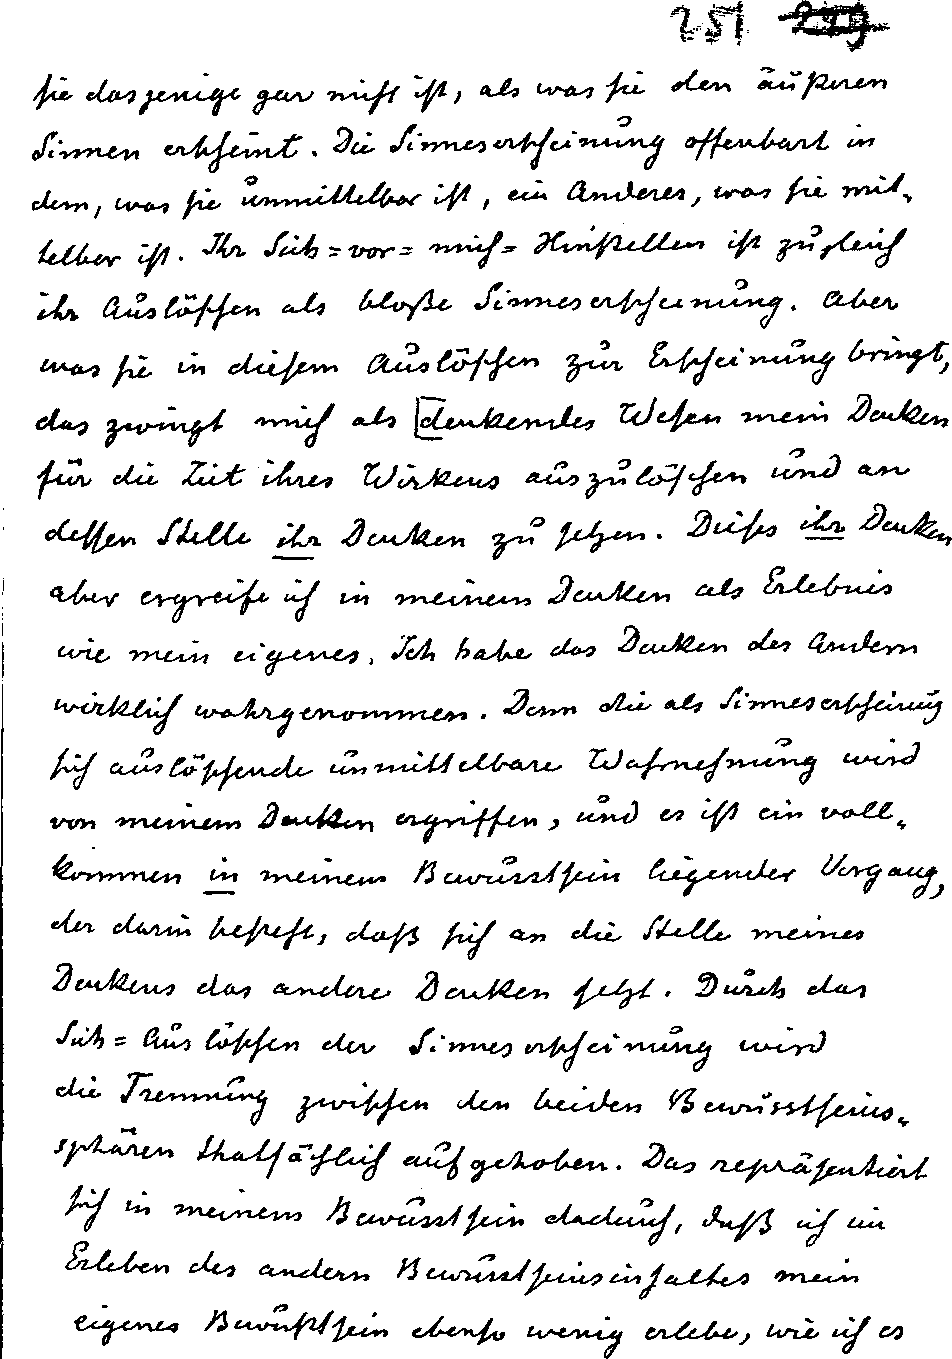 251 229
sie dasjenige gar nicht ist, als was sie den äußeren
Sinnen erscheint. Die Sinneserscheinung offenbart in
dem, was sie unmittelbar ist, ein Anderes, was sie mit-
telbar ist. Ihr Sich=vor=mich=Hinstellen ist zugleich
ihr Auslöschen als bloße Sinneserscheinung. Aber
was sie in diesem Auslöschen zur Erscheinung bringt,
das zwingt mich als denkendes Wesen mein Denken
für die Zeit ihres Wirkens auszulöschen und an
dessen Stelle ihr Denken zu setzen. Dieses ihr Denken
aber ergreife ich in meinem Denken als Erlebnis
wie mein eigenes. Ich habe das Denken des Andern
wirklich wahrgenommen. Denn die als Sinneserscheinung
sich auslöschende unmittelbare Wahrnehmung wird
von meinem Denken ergriffen, und es ist ein voll-
kommen in meinem Bewusstsein liegender Vorgang,
der darin besteht, daß sich an die Stelle meines
Denkens das andere Denken setzt. Durch das
Sich=Auslöschen der Sinneserscheinung wird
die Trennung zwischen den beiden Bewusstseins-
sphären thatsächlich aufgehoben. Das repräsentiert
sich in meinem Bewusstsein dadurch, daß ich im
Erleben des andern Bewusstseinsinhaltes mein
eigenes Bewußtsein ebenso wenig erlebe, wie ich es